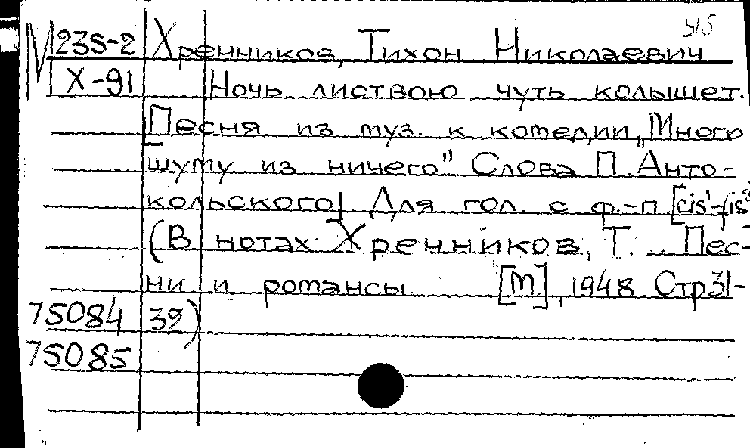 515
М 235-2 Хренников, Тихон Николаевич
Х-91 Ночь листвою чуть колышет.
[Песня из муз. к комедии „Много
шуму из ничего" Слова П. Анто-
кольского] Для гол. с ф.-п [cis¹-fis²
(В нотах: Хренников, Т. .. Пес-
ни и романсы [М], 1948 Стр31-
75084 39)
75085